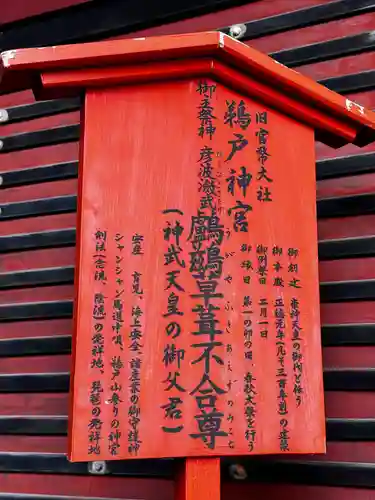 旧官幣大社
鵜戸神宮
御創建 崇神天皇の御代と伝う
御本殿 正徳元年(凡そ三百年前)の建築
御例祭日 二月一日
御縁日 第一の卯の日 春秋大祭を行う
御主祭神 彦波激武鸕鷀草葺不合尊
(神武天皇の御父君)
安産 育児、海上安全、諸産業の御守護神
シャンシャン馬道中唄、鵜戸山参りの神宮
剣法(念流、陰流)の発祥地、琵琶の発祥地